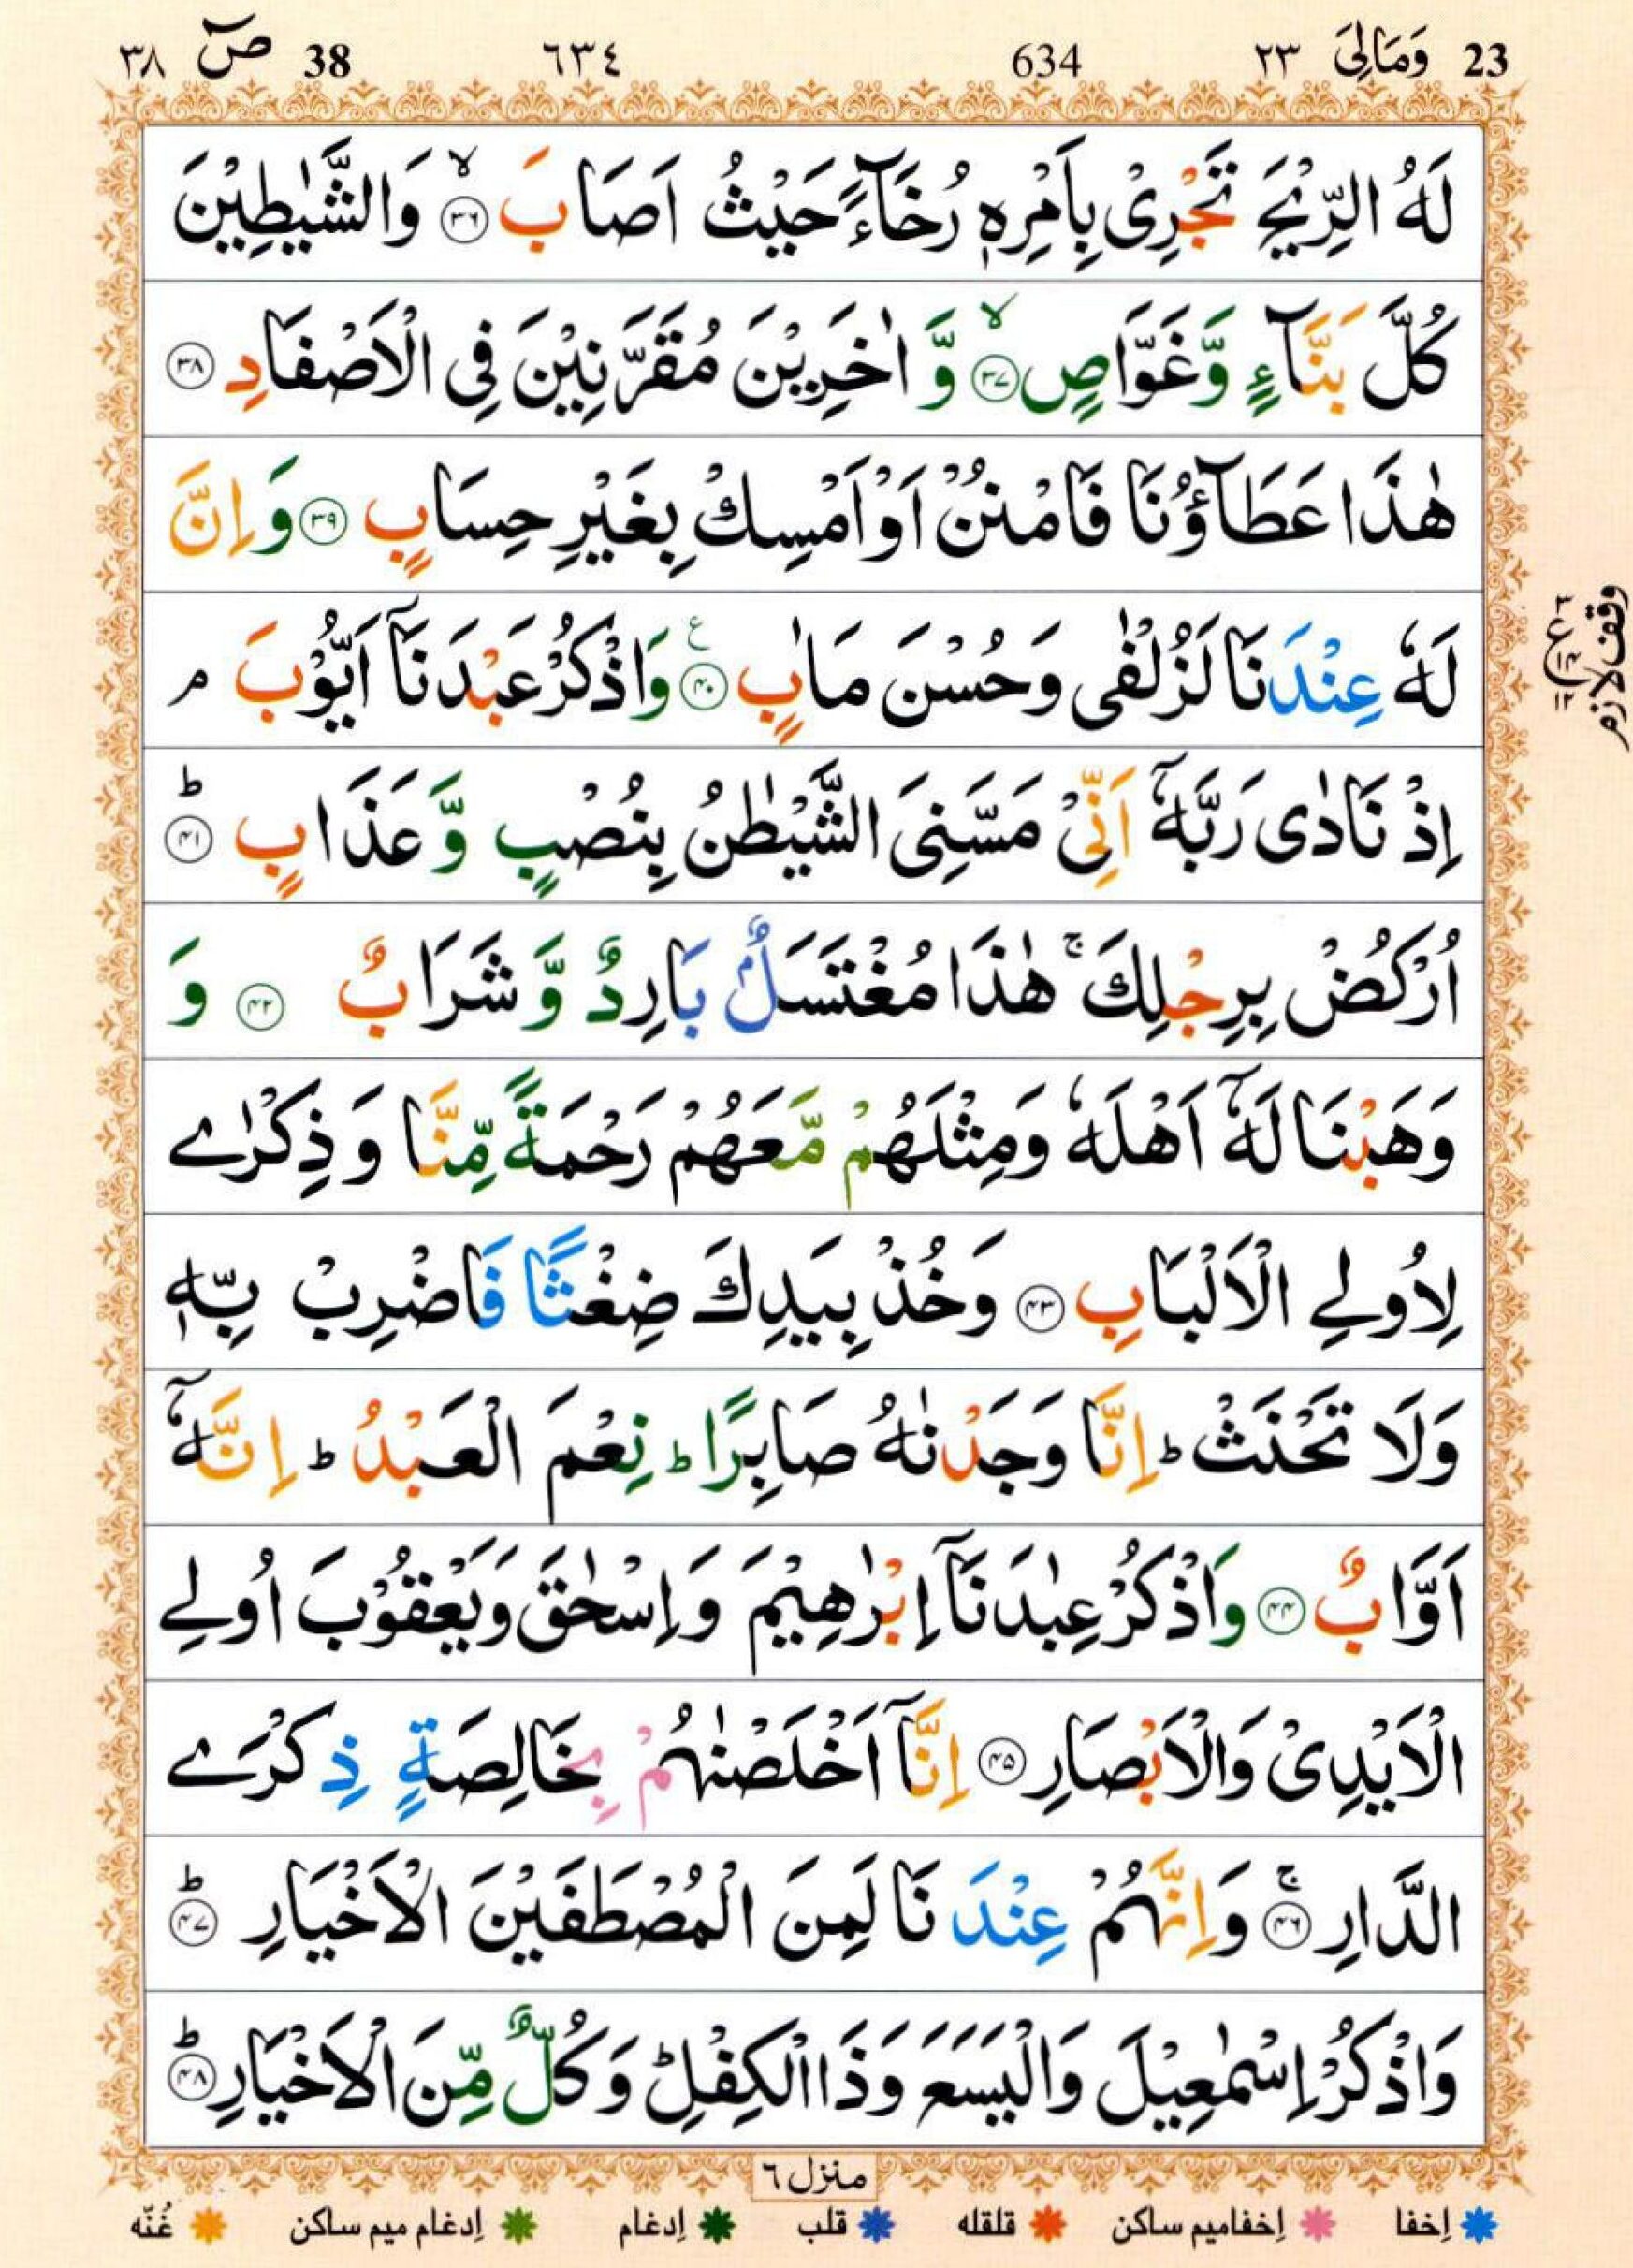 23 وَمَالِیَ ٢٣ 634 ٦٣٤ 38 صٓ ٣٨
لَهُ الرِّيْحَ تَجْرِىْ بِاَمْرِهٖ رُخَآءً حَيْثُ اَصَابَ ۙ‏﴿۳۶﴾ وَالشَّيٰطِيْنَ
كُلَّ بَنَّآءٍ وَّغَوَّاصٍ ۙ‏﴿۳۷﴾ وَّ اٰخَرِيْنَ مُقَرَّنِيْنَ فِى الْاَصْفَادِ ﴿۳۸﴾
هٰذَا عَطَآؤُنَا فَامْنُنْ اَوْ اَمْسِكْ بِغَيْرِ حِسَابٍ ﴿۳۹﴾ وَاِنَّ
لَهٗ عِنْدَنَا لَزُلْفٰى وَحُسْنَ مَاٰبٍ ﴿۴۰﴾ ع وَاذْكُرْ عَبْدَنَاۤ اَيُّوْبَ ۘ
وقف لازم
ع
١٢
اِذْ نَادٰى رَبَّهٗۤ اَنِّىْ مَسَّنِىَ الشَّيْطٰنُ بِنُصْبٍ وَّعَذَابٍ ؕ‏﴿۴۱﴾
اُرْكُضْ بِرِجْلِكَ ۚ هٰذَا مُغْتَسَلٌۢ بَارِدٌ وَّشَرَابٌ ﴿۴۲﴾ وَ
وَهَبْنَا لَهٗۤ اَهْلَهٗ وَمِثْلَهُمْ مَّعَهُمْ رَحْمَةً مِّنَّا وَذِكْرٰے
لِاُولِے الْاَلْبَابِ ﴿۴۳﴾ وَخُذْ بِيَدِكَ ضِغْثًا فَاضْرِبْ بِّهٖ
وَلَا تَحْنَثْ ؕ اِنَّا وَجَدْنٰهُ صَابِرًا ؕ نِعْمَ الْعَبْدُ ؕ اِنَّهٗۤ
اَوَّابٌ ﴿۴۴﴾ وَاذْكُرْ عِبٰدَنَاۤ اِبْرٰهِيْمَ وَاِسْحٰقَ وَيَعْقُوْبَ اُولِے
الْاَيْدِىْ وَالْاَبْصَارِ ﴿۴۵﴾ اِنَّاۤ اَخْلَصْنٰهُمْ بِخَالِصَةٍ ذِكْرَے
الدَّارِ ۚ‏﴿۴۶﴾ وَاِنَّهُمْ عِنْدَنَا لَمِنَ الْمُصْطَفَيْنَ الْاَخْيَارِ ؕ‏﴿۴۷﴾
وَاذْكُرْ اِسْمٰعِيْلَ وَالْيَسَعَ وَذَا الْكِفْلِ ؕ وَكُلٌّ مِّنَ الْاَخْيَارِ ؕ‏﴿۴۸﴾
منزل ٦
إخفا إخفامیم ساکن قلقله قلب إدغام إدغام میم ساکن غُنّه